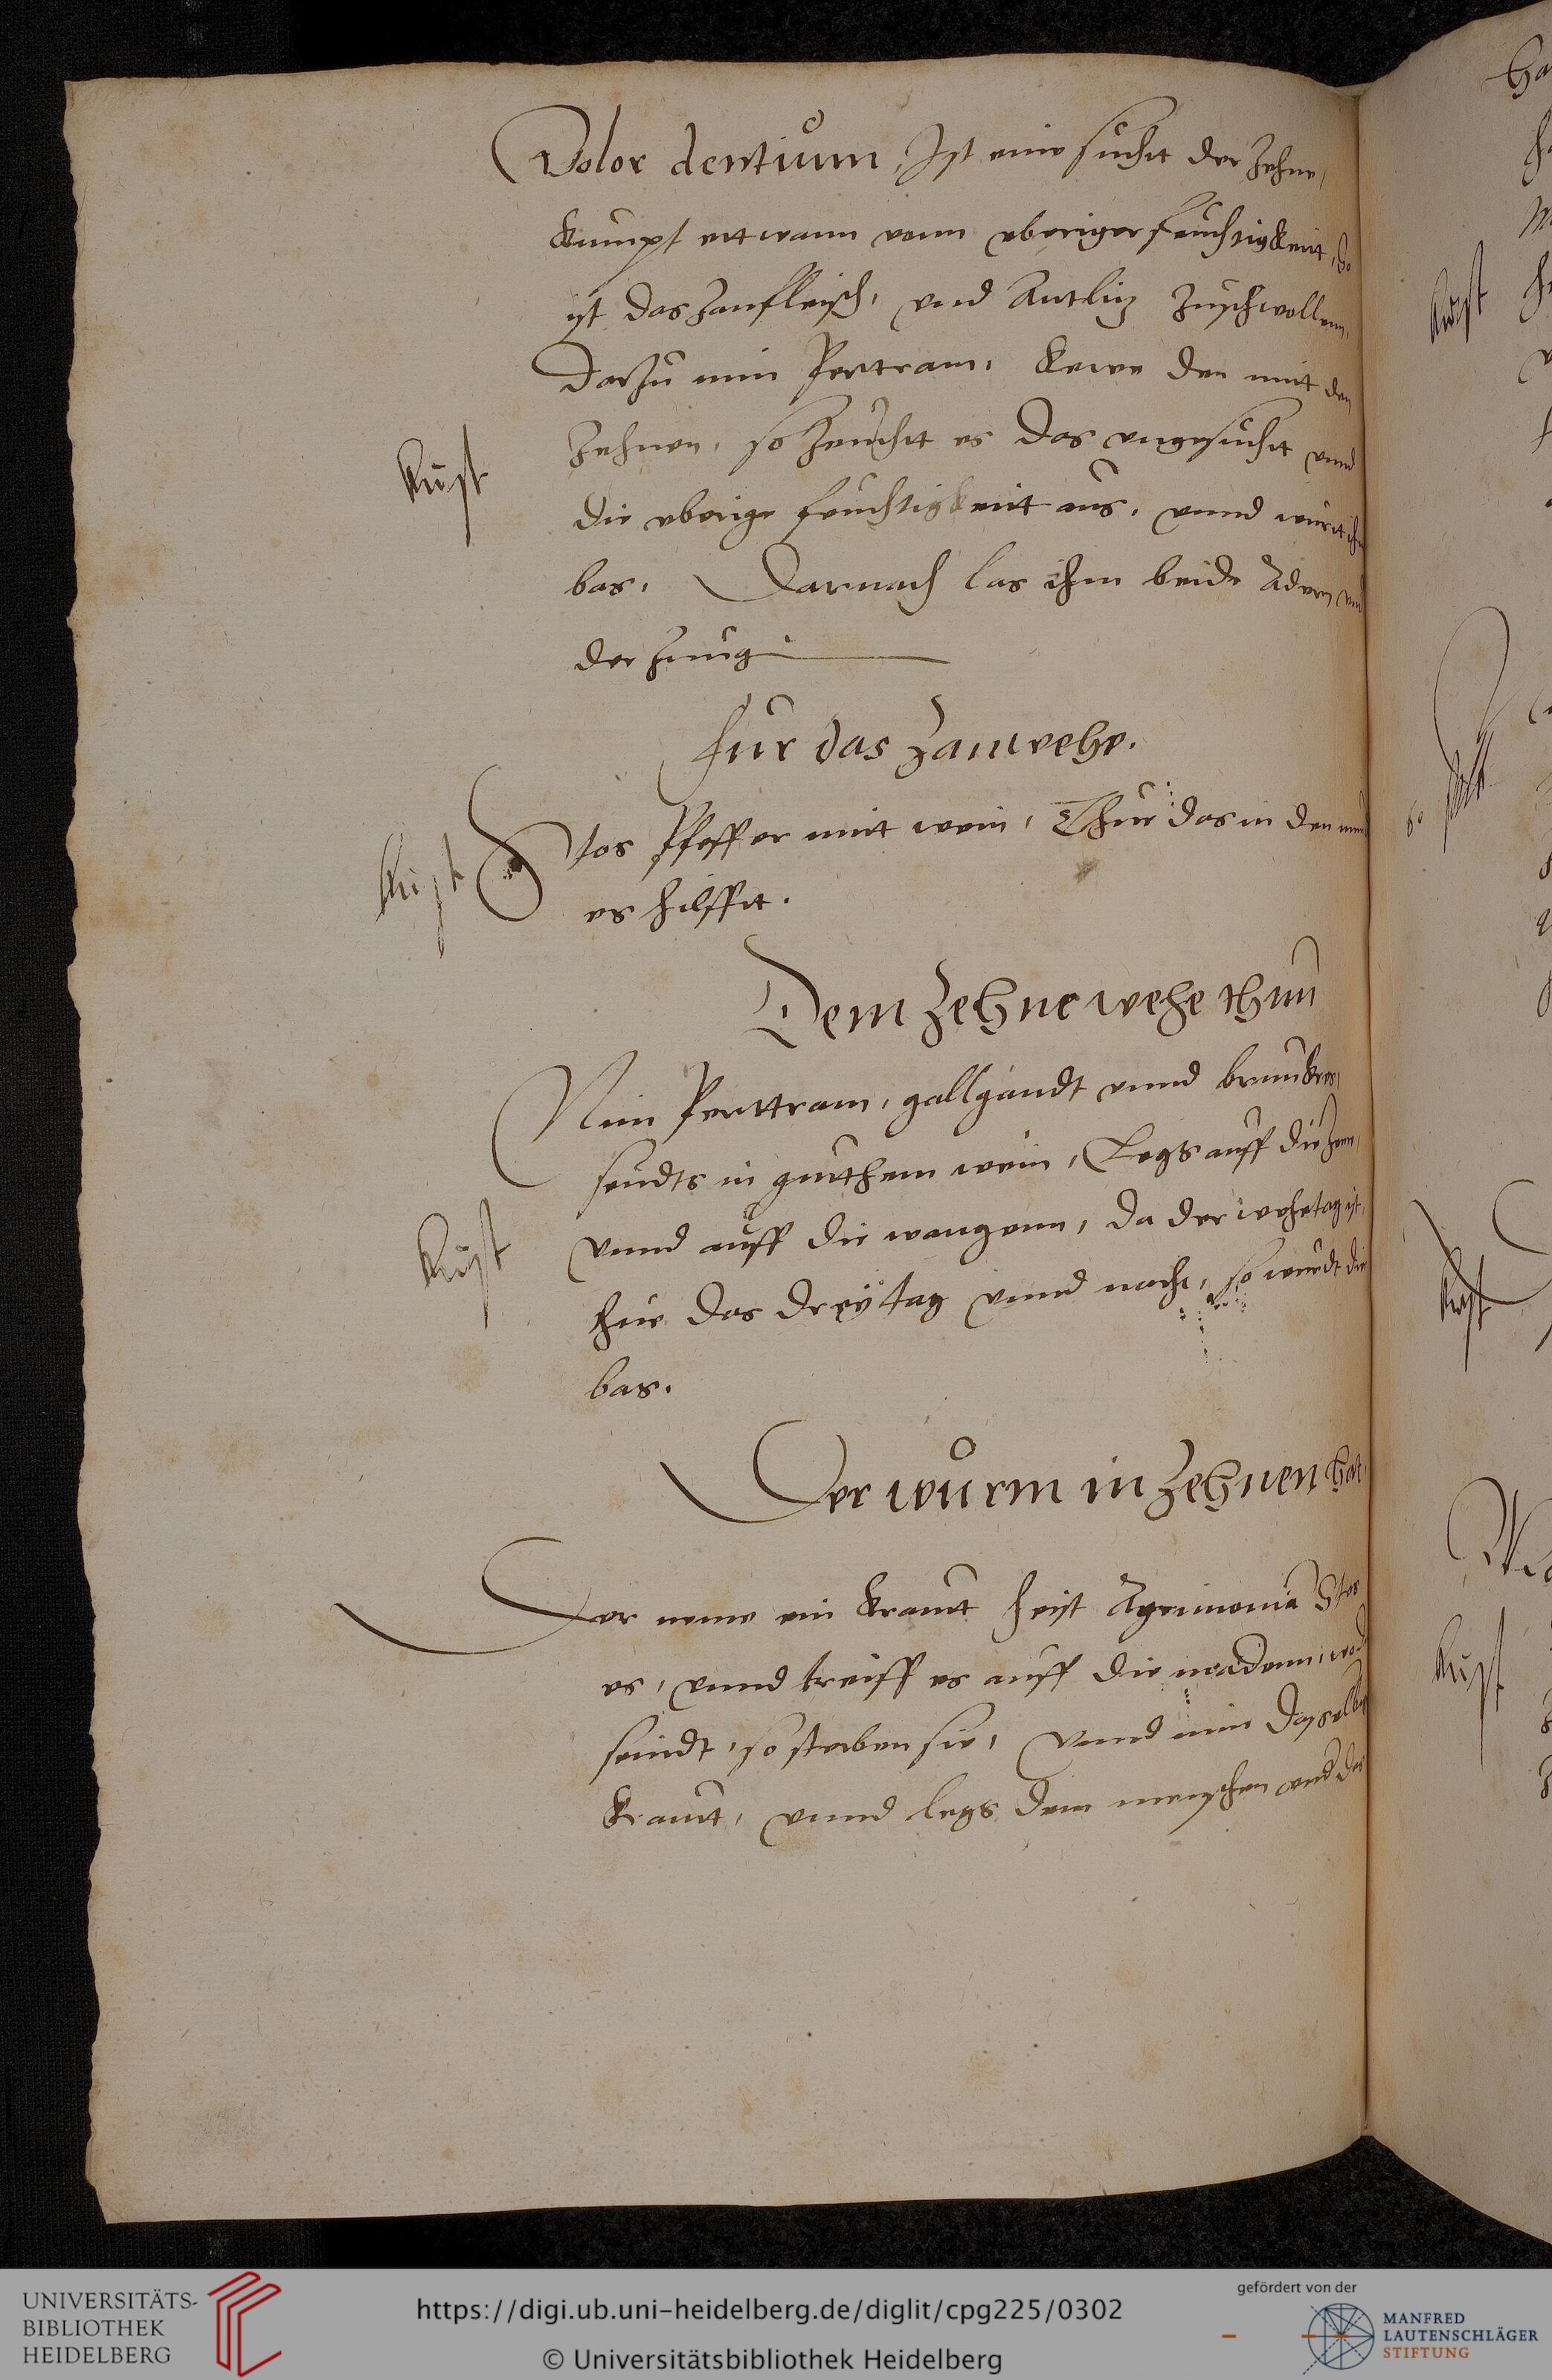 Dolor dentium, Ist eine sucht der Zehne,
kumpt ettwann vonn vberiger feuchtigkeitt, So
ist das Zanfleisch, vnd Antlitz Zuschwollenn,
Darzu nim Pertram, kewe den mit den
Zehnen, so Zeuchtt es das vngesucht vnnd
Kust
die vberige feuchtigkeitt aus, vnnd wurtt ihm
bas, Darnach las ihm beide Adern vnd
der Zung
Fur das Zanwehe.
Stos Pfeffer mitt wein, Thue das in den mund
Kust
es hilfft.
Dem Zehne wehe thun
Nim Perttram, gallgandt vnnd brunkres,
seudts in guthem wein, Legs auff die Zen,
vnnd auff die wangenn, da der wehetag ist,
Kust
thue das drey tag vnnd nacht, so wurdt dir
bas.
Der wurm in Zehnen hat,
Der neme ein kraut heist Agrimonia Stos
es, vnnd treiff es auff die madenn, wo
seindt, so sterben sie, vnnd nim dasselbig
kraut, vnnd legs dem menschen vnd das
Kust
Kust
Kust
UNIVERSITÄTS-
BIBLIOTHEK
HEIDELBERG
https://digi.ub.uni-heidelberg.de/diglit/cpg225/0302
© Universitätsbibliothek Heidelberg
gefördert von der
MANFRED
LAUTENSCHLÄGER
STIFTUNG